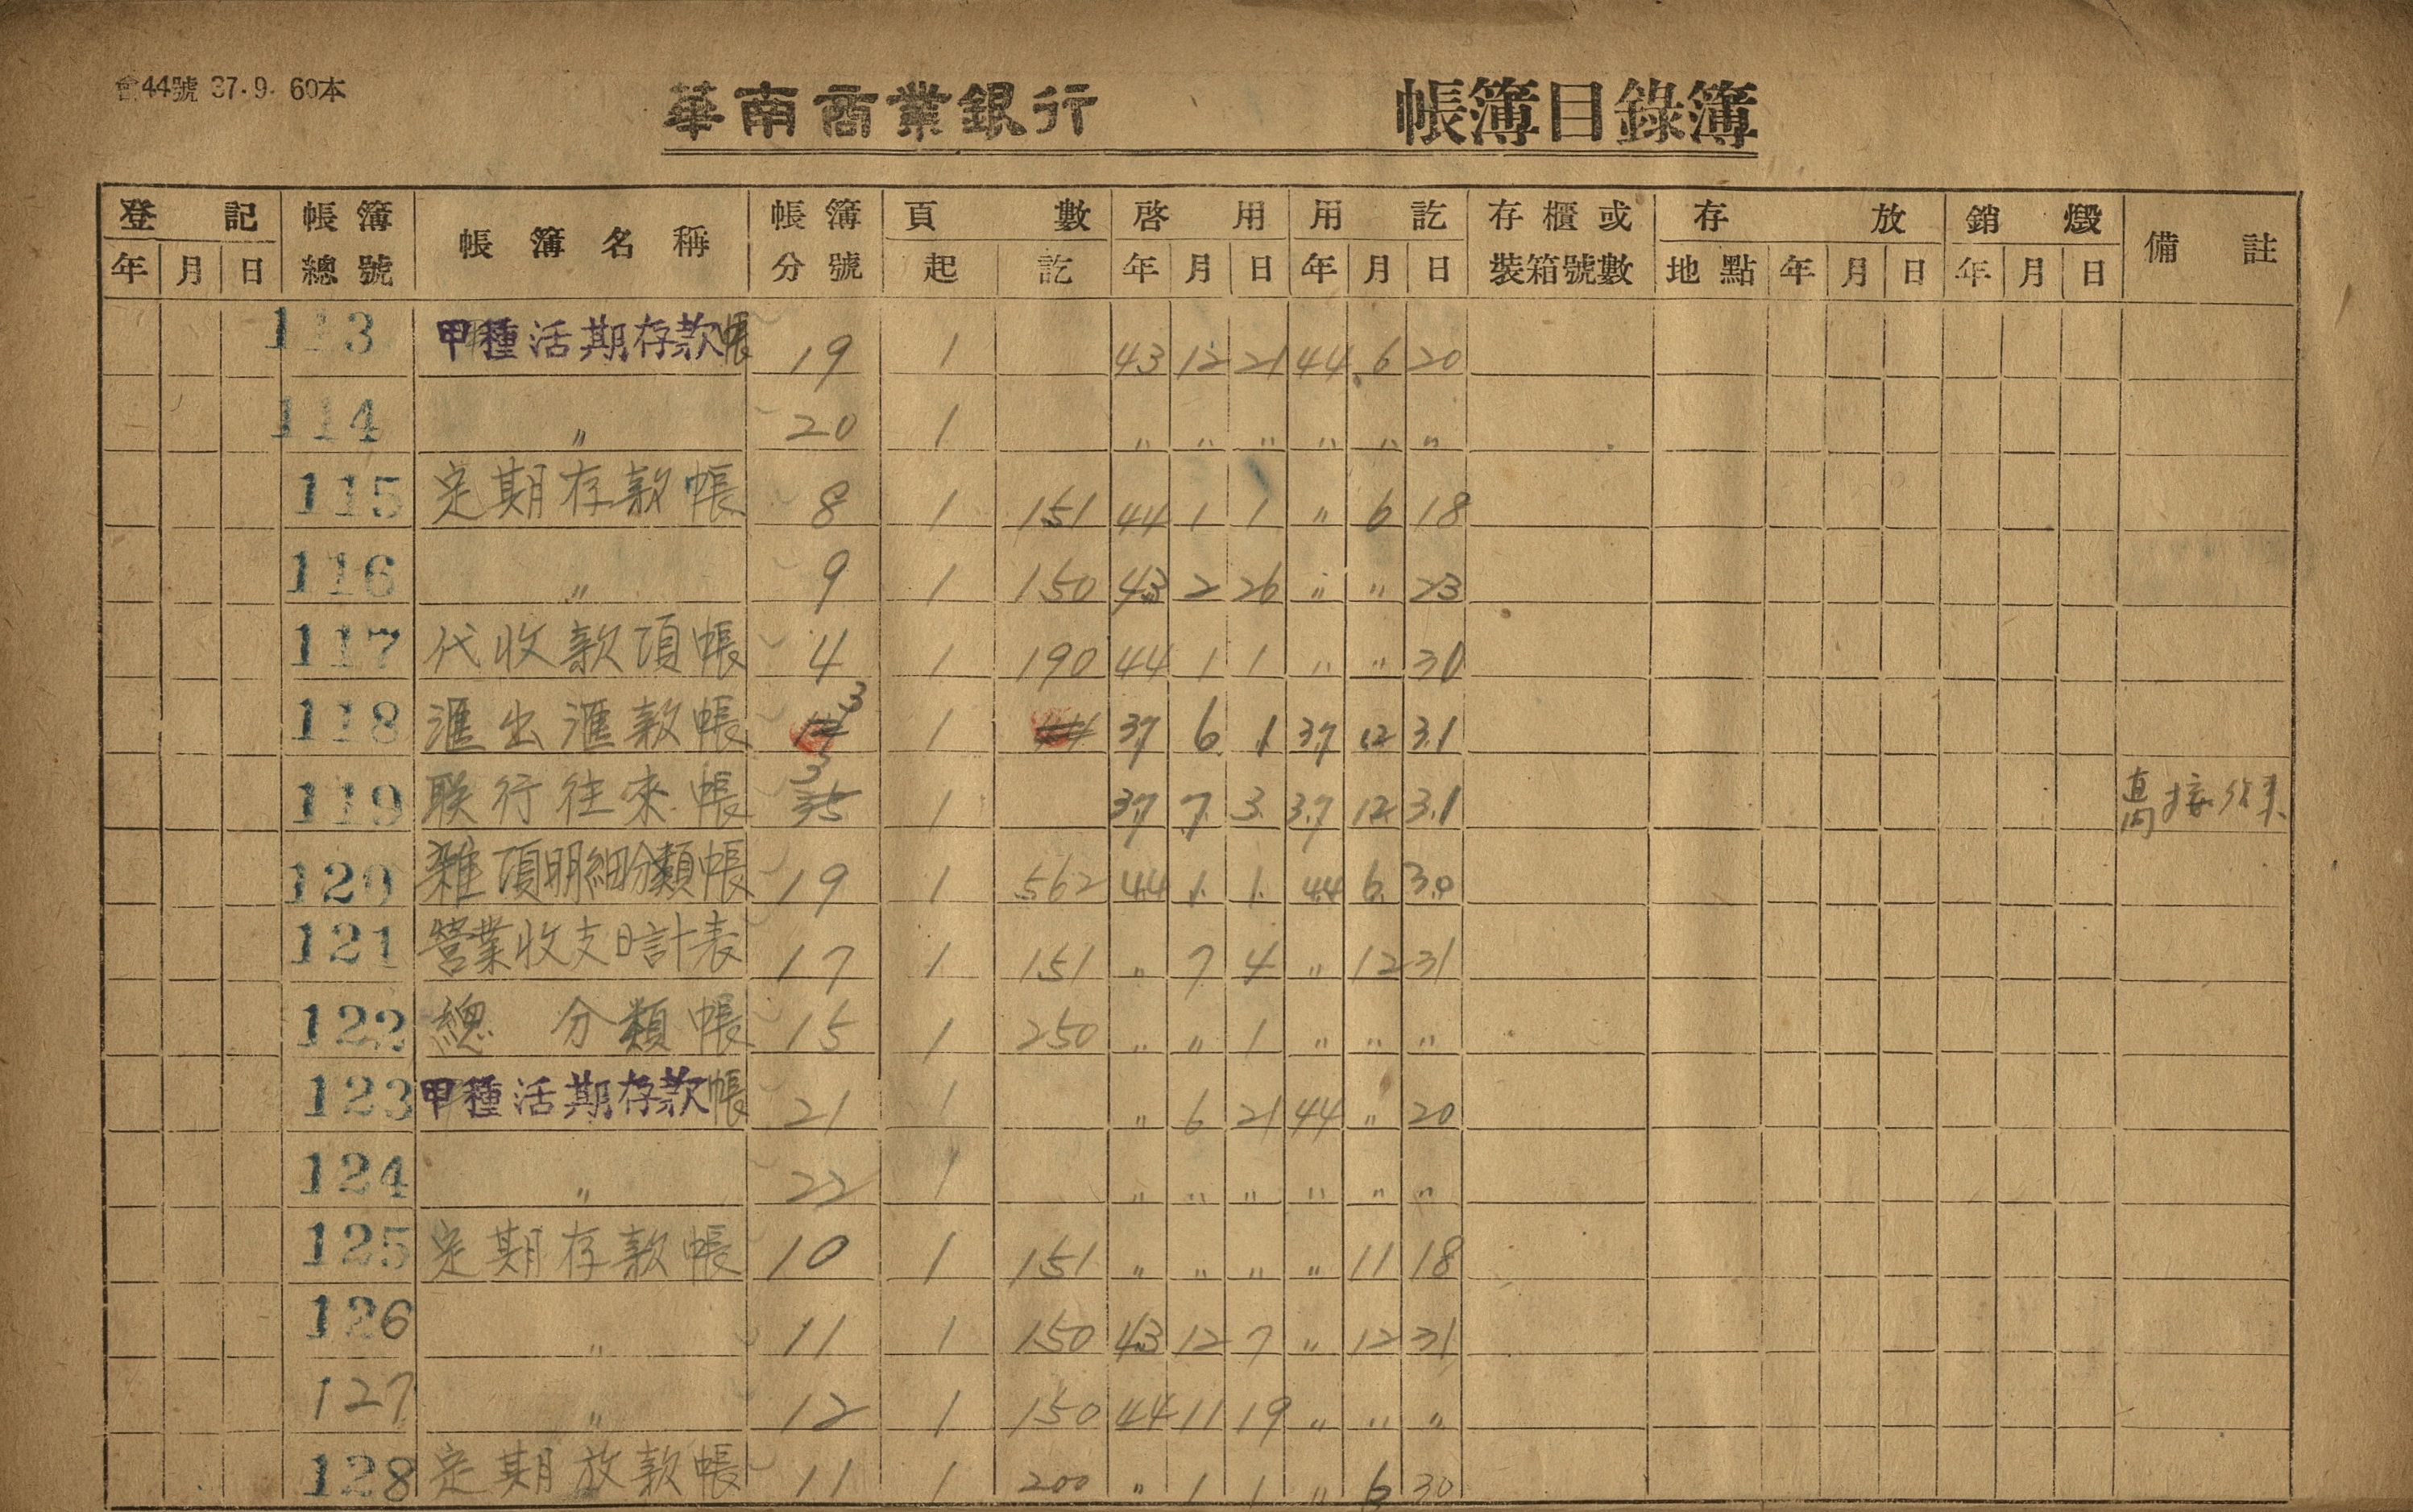 會44號 37.9. 60本
華南商業銀行 帳簿目錄簿
登記 帳簿 帳簿名稱 帳簿 頁數 啓用 用訖 存櫃或 存放 銷燬 備註
年 月 日 總號 分號 起 訖 年 月 日 年 月 日 裝箱號數 地點 年 月 日 年 月 日
113 甲種活期存款帳 19 1 43 12 21 44 6 20
114 〃 20 1 〃 〃 〃 〃 〃 〃
115 定期存款帳 8 1 151 44 1 1 〃 6 18
116 〃 9 1 150 43 2 26 〃 〃 23
117 代收款項帳 4 1 190 44 1 1 〃 〃 30
118 滙出滙款帳 3 1 37 6 1 37 12 31
119 联行往來帳 3 35 1 37 7 3 37 12 31
120 雜項明細分類帳 19 1 562 44 1 1 44 6 30
121 營業收支日計表 17 1 151 〃 7 4 〃 12 31
122 總分類帳 15 1 250 〃 〃 1 〃 〃 〃
123 甲種活期存款帳 21 1 〃 6 21 44 〃 20
124 〃 22 1 〃 〃 〃 〃 〃 〃
125 定期存款帳 10 1 151 〃 〃 〃 〃 11 18
126 〃 11 1 150 43 12 7 〃 12 31
127 〃 12 1 150 44 11 19 〃 〃 〃
128 定期放款帳 11 1 200 〃 1 1 〃 6 30